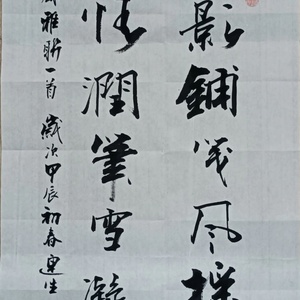 影鋪笺风
性潤筆雪凝
雅聯一首 歲次甲辰初春建生